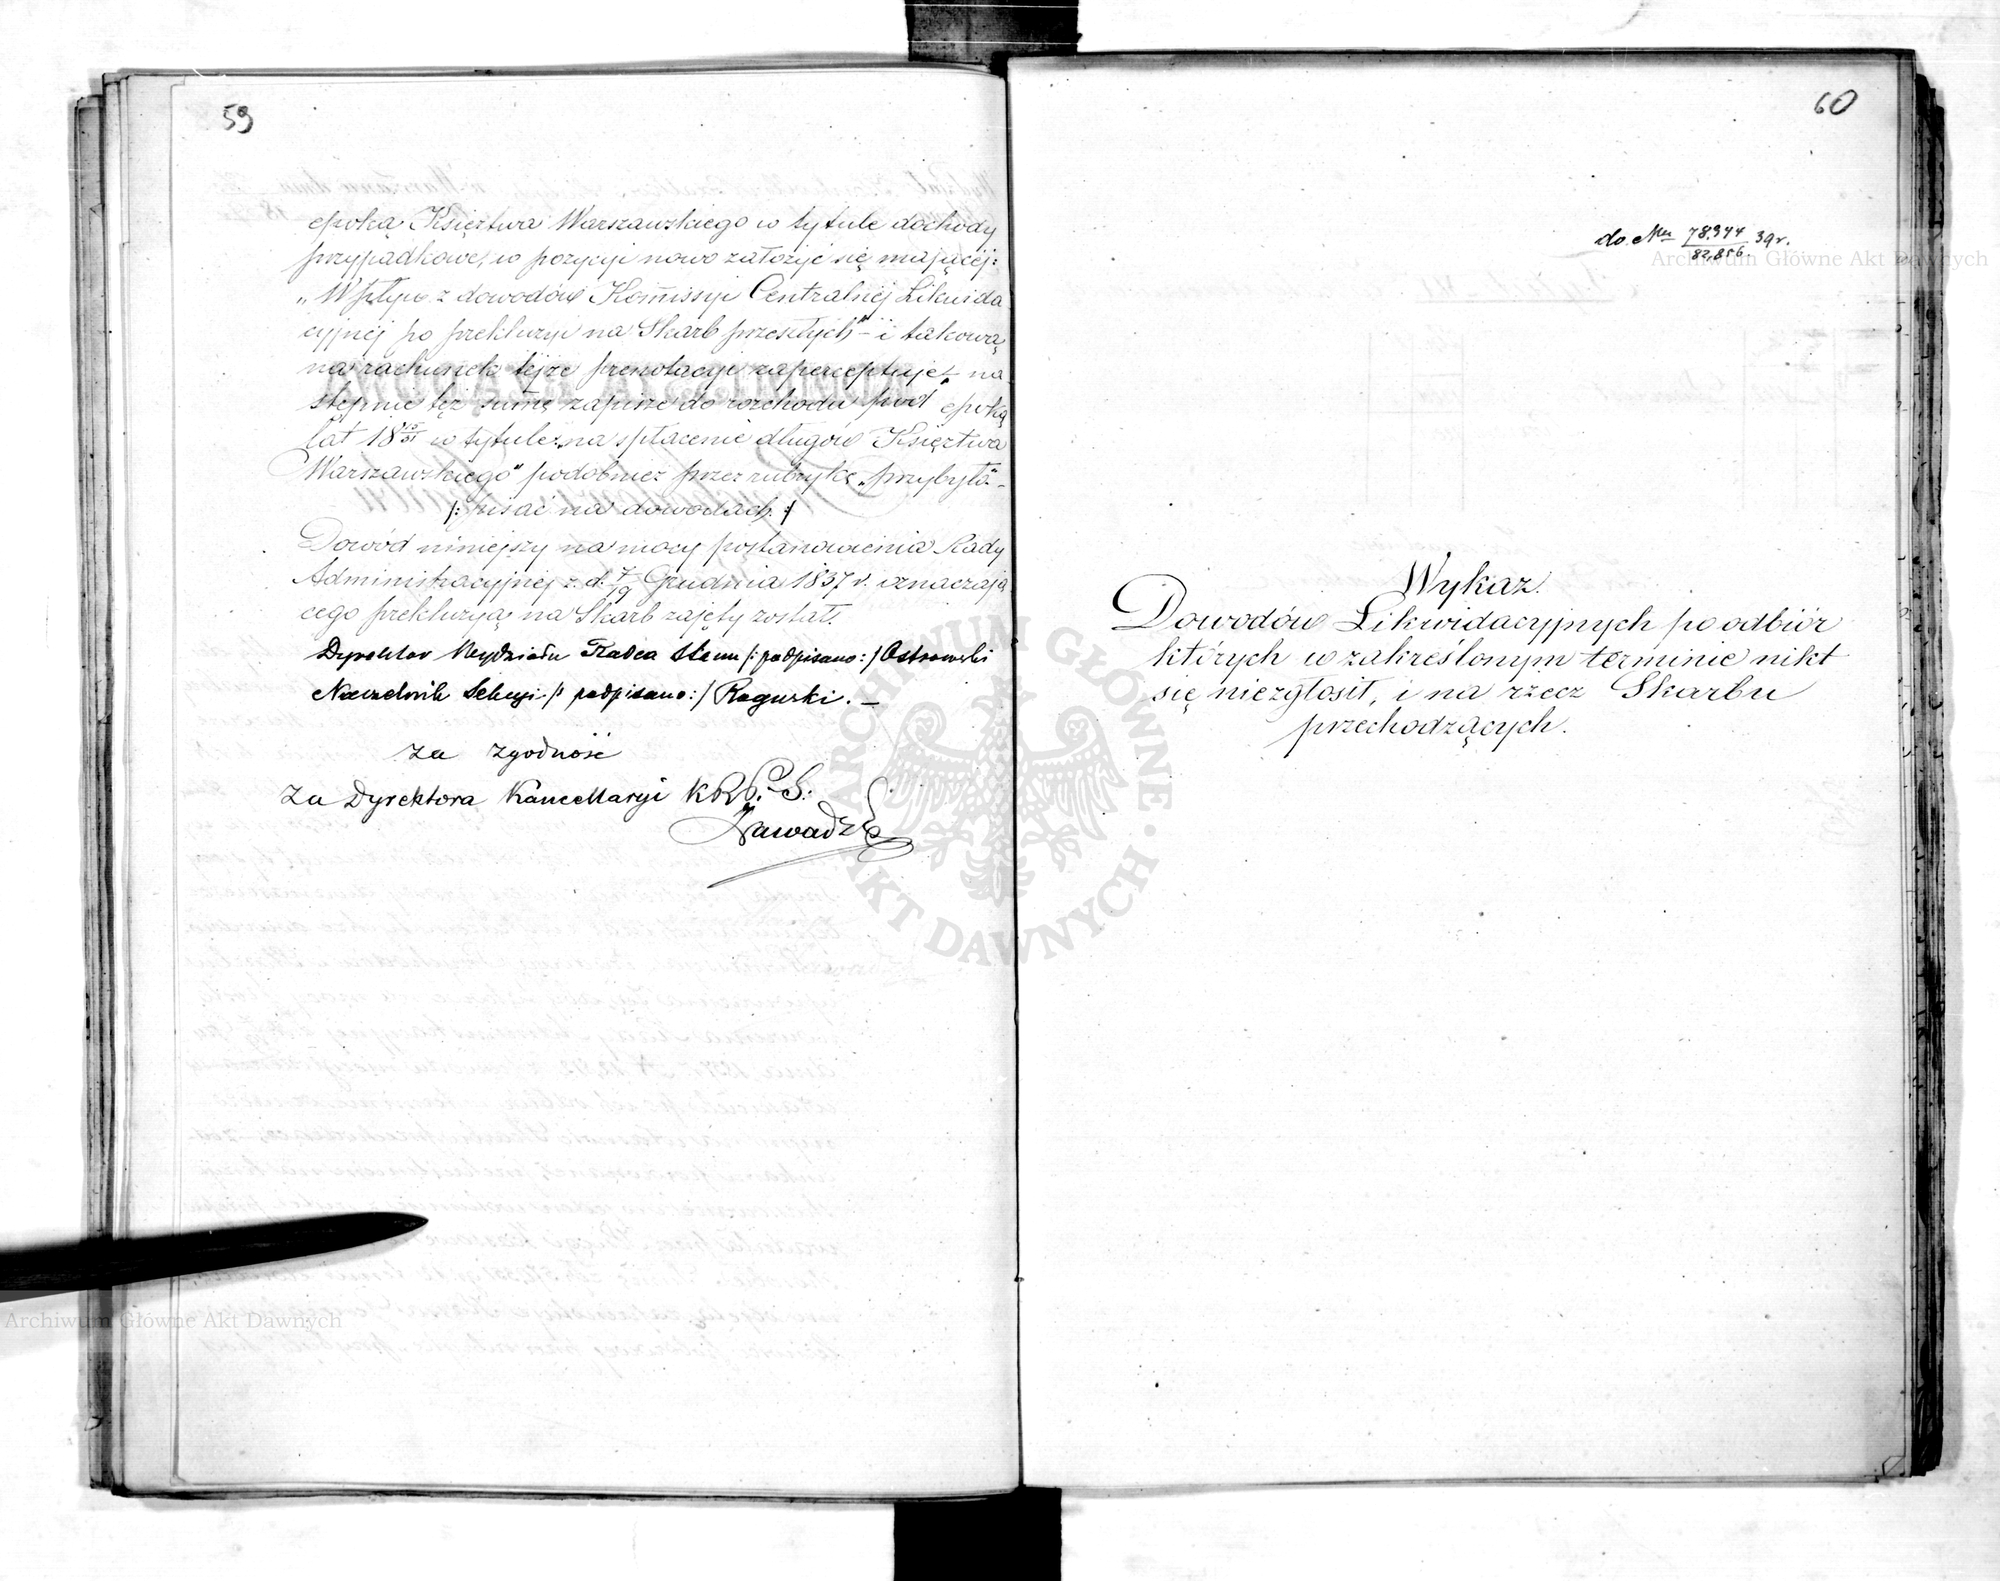 59
epoką Księztwa Warszawskiego w tytule dochody
przypadkowe, w pozycyi nowo założyć się mającej:
„Wpływ z dowodów Kommissyi Centralnéj Likwida
cyjnéj po prekluzyi na Skarb przeszłych" – i takową
na rachunek tejże prenotacyi zaperceptuje – na
stępnie tęż sumę zapisze do rozchodu pod epoką
lat 18 15/31 w tytule „na spłacenie długów Księztwa
Warszawskiego" podobnież przez rubrykę „przybyło" –
/: pisać na dowodach :/
Dowód niniejszy na mocy postanowienia Rady
Administracyjnéj z d. 7/19 Grudnia 1837 r. oznaczają
cego prekluzyą na Skarb zajęty został.
Dyrektor Wydziału Radca Stanu /: podpisano :/ Ostrowski
Naczelnik Sekcyi /: podpisano :/ Rogurski. –
za zgodność
za Dyrektora Kancellaryi K.R.P. i S:
Zawadzki
60
do Nru 78,944/82,856 39 r.
Wykaz.
Dowodów Likwidacyjnych po odbiór
których w zakreślonym terminie nikt
się niezgłosił, i na rzecz Skarbu
przechodzących.
Archiwum Główne Akt Dawnych
ARCHIWUM GŁÓWNE AKT DAWNYCH
Archiwum Główne Akt Dawnych